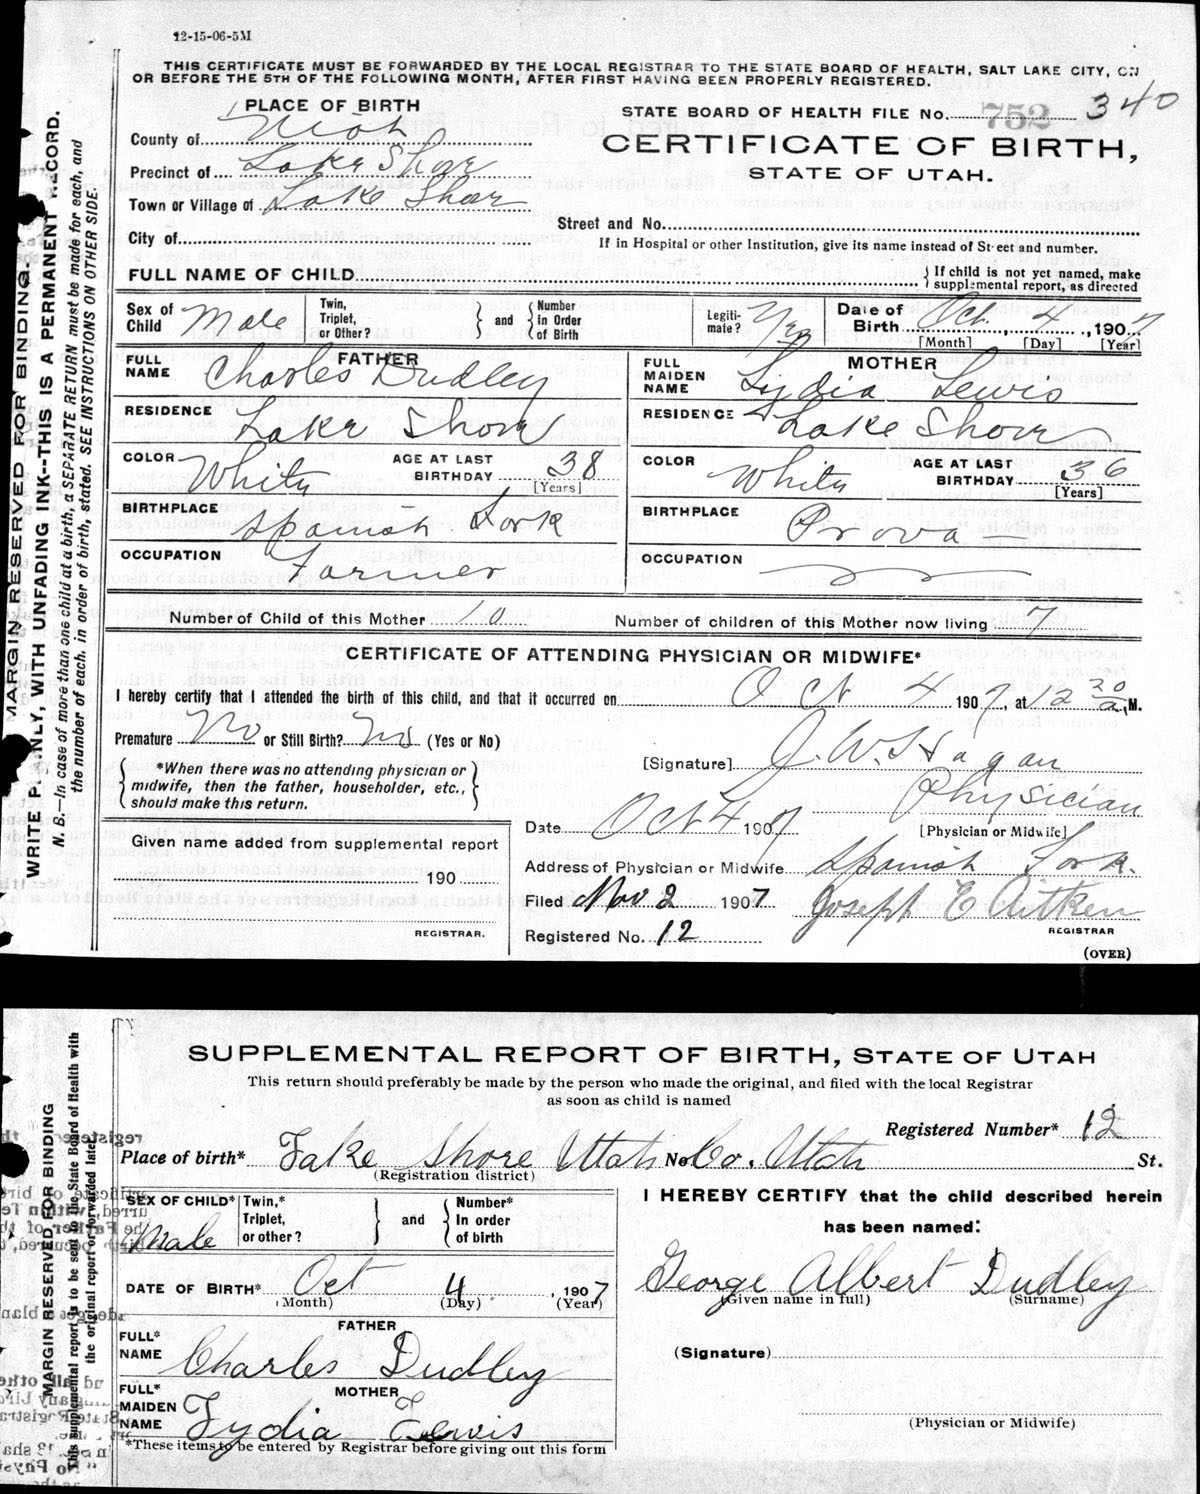 12-15-06-5M
THIS CERTIFICATE MUST BE FORWARDED BY THE LOCAL REGISTRAR TO THE STATE BOARD OF HEALTH, SALT LAKE CITY, ON
OR BEFORE THE 5TH OF THE FOLLOWING MONTH, AFTER FIRST HAVING BEEN PROPERLY REGISTERED.
PLACE OF BIRTH
County of Utah
Precinct of Lake Shore
Town or Village of Lake Shore
City of
STATE BOARD OF HEALTH FILE No. 752 340
CERTIFICATE OF BIRTH,
STATE OF UTAH.
Street and No.
If in Hospital or other Institution, give its name instead of Street and number.
FULL NAME OF CHILD
If child is not yet named, make
supplemental report, as directed
Sex of Child Male
Twin, Triplet, or Other?
and
Number in Order of Birth
Legiti-mate? Yes
Date of Birth Oct. 4, 1907
[Month] [Day] [Year]
FATHER
FULL NAME Charles Dudley
RESIDENCE Lake Shore
COLOR White AGE AT LAST BIRTHDAY 38 [Years]
BIRTHPLACE Spanish Fork
OCCUPATION Farmer
MOTHER
FULL MAIDEN NAME Lydia Lewis
RESIDENCE Lake Shore
COLOR White AGE AT LAST BIRTHDAY 36 [Years]
BIRTHPLACE Provo
OCCUPATION
Number of Child of this Mother 10 Number of children of this Mother now living 7
CERTIFICATE OF ATTENDING PHYSICIAN OR MIDWIFE*
I hereby certify that I attended the birth of this child, and that it occurred on Oct 4 1907, at 12 20 a.M.
Premature No or Still Birth? No (Yes or No)
*When there was no attending physician or
midwife, then the father, householder, etc.,
should make this return.
[Signature] J. W. Hagan
Physician
[Physician or Midwife]
Date Oct 4 1907
Given name added from supplemental report
190
REGISTRAR.
Address of Physician or Midwife Spanish Fork.
Filed Nov 2 1907 Joseph E Aitken
REGISTRAR
Registered No. 12
(OVER)
MARGIN RESERVED FOR BINDING.
WRITE PLAINLY, WITH UNFADING INK--THIS IS A PERMANENT RECORD.
N. B.—In case of more than one child at a birth, a SEPARATE RETURN must be made for each, and
the number of each, in order of birth, stated. SEE INSTRUCTIONS ON OTHER SIDE.
SUPPLEMENTAL REPORT OF BIRTH, STATE OF UTAH
This return should preferably be made by the person who made the original, and filed with the local Registrar
as soon as child is named
Registered Number* 12
Place of birth* Lake Shore Utah No Co. Utah St.
(Registration district)
SEX OF CHILD* Male
Twin,* Triplet, or other?
and
Number* In order of birth
DATE OF BIRTH* Oct 4, 1907
(Month) (Day) (Year)
FATHER
FULL* NAME Charles Dudley
MOTHER
FULL* MAIDEN NAME Lydia Lewis
*These items to be entered by Registrar before giving out this form
I HEREBY CERTIFY that the child described herein
has been named:
George Albert Dudley
(Given name in full) (Surname)
(Signature)
(Physician or Midwife)
MARGIN RESERVED FOR BINDING
This supplemental report is to be sent to the State Board of Health with
the original report or forwarded later